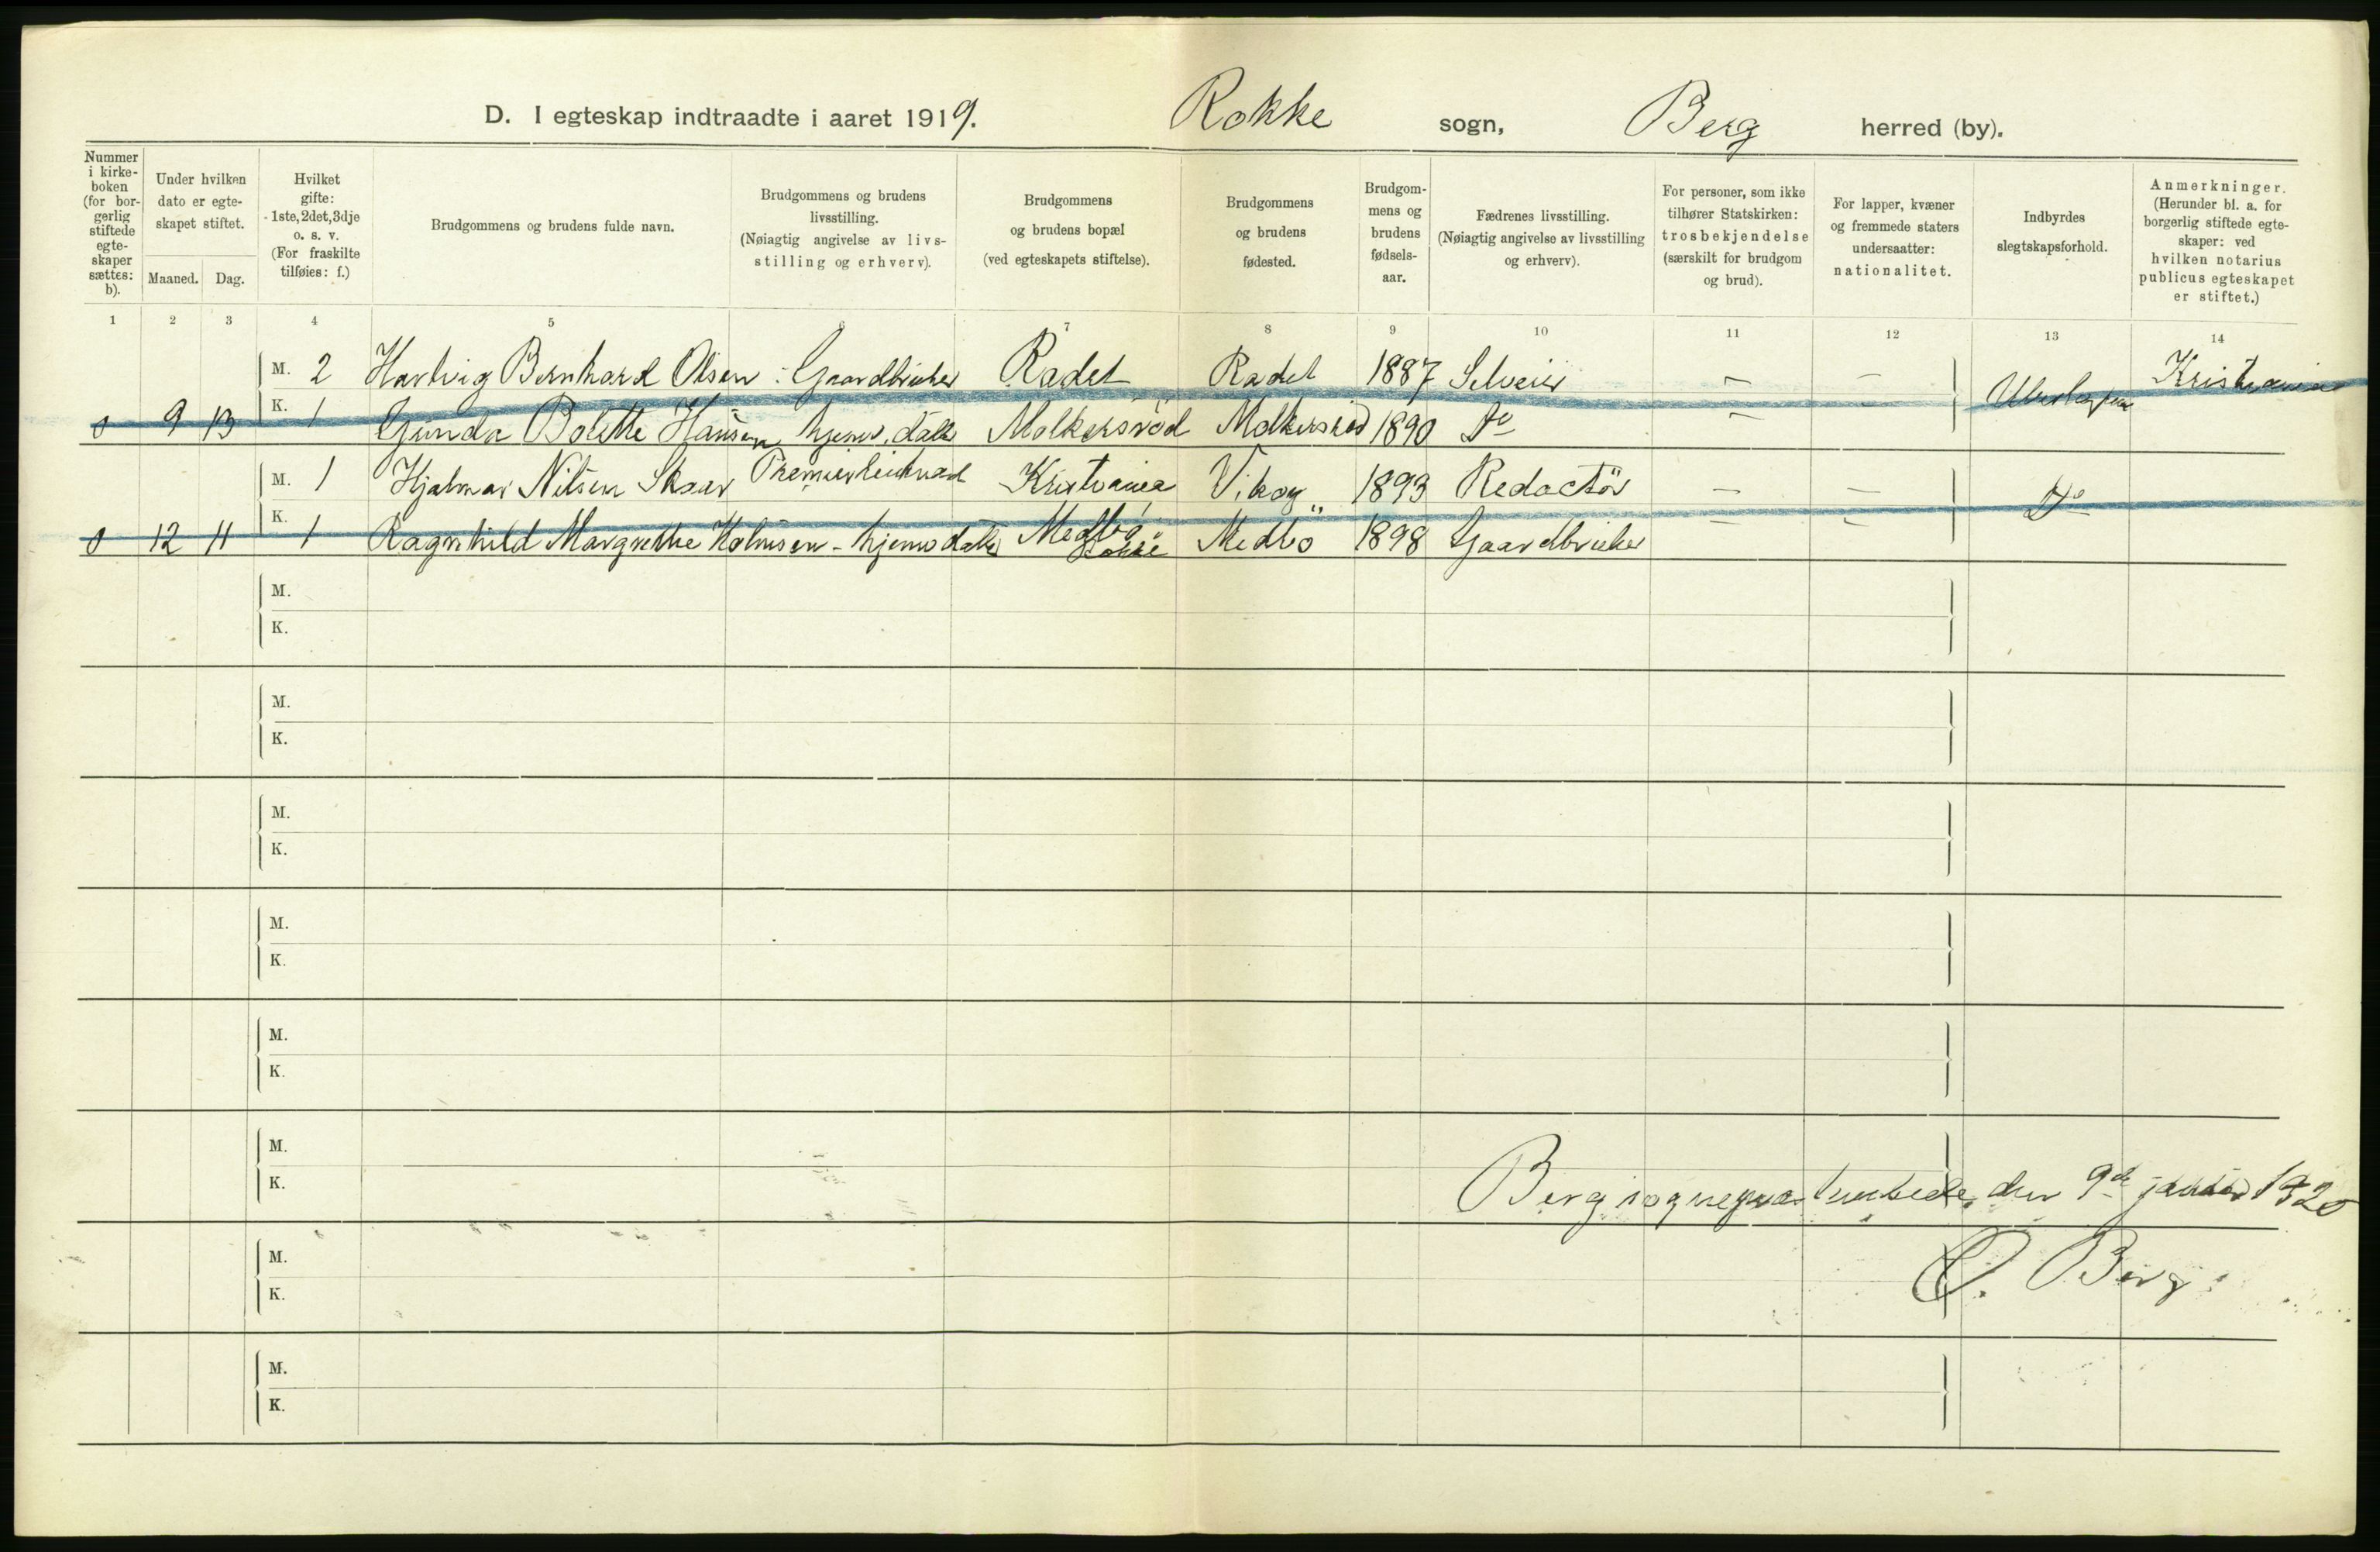 D. I egteskap indtraadte i aaret 1919. Rokke sogn, Berg herred (by).
Nummer i kirke-boken (for bor-gerlig stiftede egte-skaper sættes: b).
Under hvilken dato er egte-skapet stiftet.
Maaned. Dag.
Hvilket gifte: 1ste, 2det, 3dje o. s. v. (For fraskilte tilføies: f.)
Brudgommens og brudens fulde navn.
Brudgommens og brudens livsstilling. (Nøiagtig angivelse av livs-stilling og erhverv).
Brudgommens og brudens bopæl (ved egteskapets stiftelse).
Brudgommens og brudens fødested.
Brudgom-mens og brudens fødsels-aar.
Fædrenes livsstilling. (Nøiagtig angivelse av livsstilling og erhverv).
For personer, som ikke tilhører Statskirken: trosbekjendelse (særskilt for brudgom og brud).
For lapper, kvæner og fremmede staters undersaatter: nationalitet.
Indbyrdes slegtskapsforhold.
Anmerkninger. (Herunder bl. a. for borgerlig stiftede egte-skaper: ved hvilken notarius publicus egteskapet er stiftet.)
1 2 3 4 5 6 7 8 9 10 11 12 13 14
M. 2 Hartvig Bernhard Olsen Gaardbruker Radet Radet 1887 Selveier — — Kristiania
0 9 13 K. 1 Gunda Bolette Hansen hjemv. datter Molkersrød Molkersrød 1890 Do —
M. 1 Hjalmar Nilsen Skaar Premierleutnad Kristiania Vikøy 1893 Redactør — — Do
0 12 11 K. 1 Ragnhild Margrethe Holmsen - hjemv datter Medbö Rokke Medbö 1898 Gaardbruker — —
M.
K.
M.
K.
M.
K.
M.
K.
M.
K.
M.
K.
Berg sogneprestembede den 9de januar 1920
M.
K.
O. Berg
M.
K.